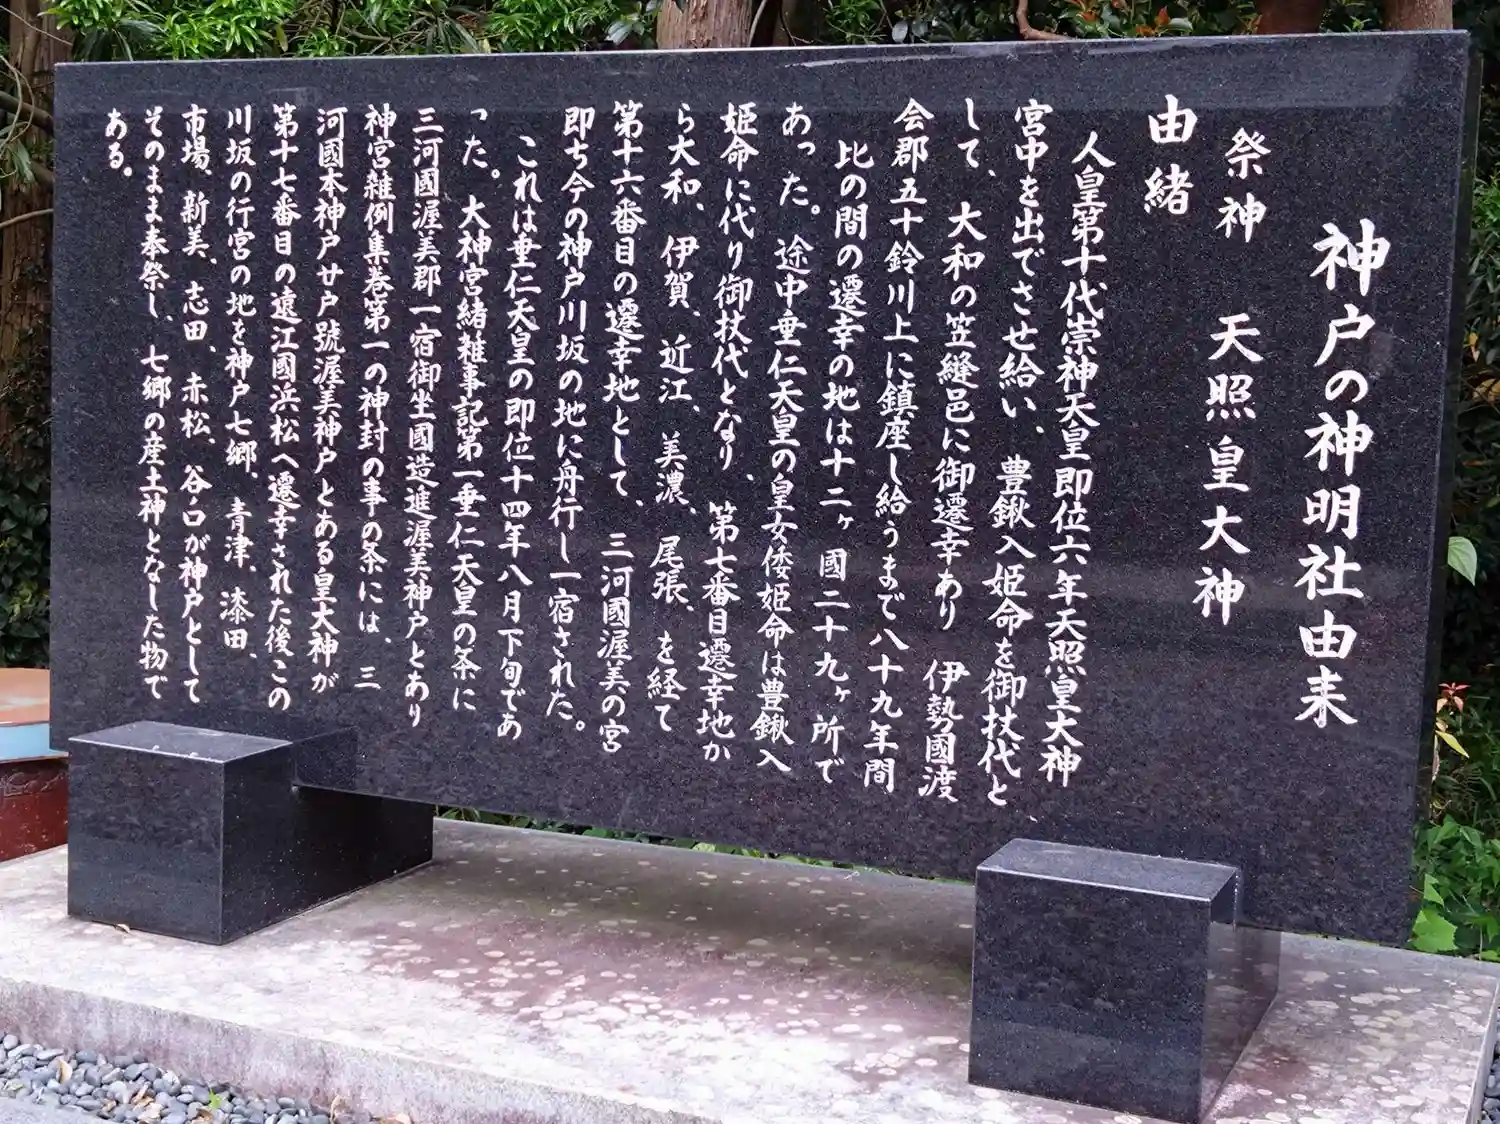 神戸の神明社由来
祭神　天照皇大神
由緒
人皇第十代崇神天皇即位六年天照皇大神
宮中を出でさせ給い、豊鍬入姫命を御扙代と
して、大和の笠縫邑に御遷幸あり　伊勢國渡
会郡五十鈴川上に鎮座し給うまで八十九年間
比の間の遷幸の地は十二ヶ國二十九ヶ所で
あった。途中垂仁天皇の皇女倭姫命は豊鍬入
姫命に代り御扙代となり、第七番目遷幸地か
ら大和、伊賀、近江、美濃、尾張、を経て
第十六番目の遷幸地として、三河國渥美の宮
即ち今の神戸川坂の地に舟行し一宿された。
これは垂仁天皇の即位十四年八月下旬であ
った。大神宮緒雑事記第一垂仁天皇の条に
三河國渥美郡一宿御坐國造進渥美神戸とあり
神宮雑例集巻第一の神封の事の条には、三
河國本神戸廿戸號渥美神戸とある皇大神が
第十七番目の遠江國浜松へ遷幸された後この
川坂の行宮の地を神戸七郷、青津、漆田、
市場、新美、志田、赤松、谷口が神戸として
そのまま奉祭し、七郷の産土神となした物で
ある。